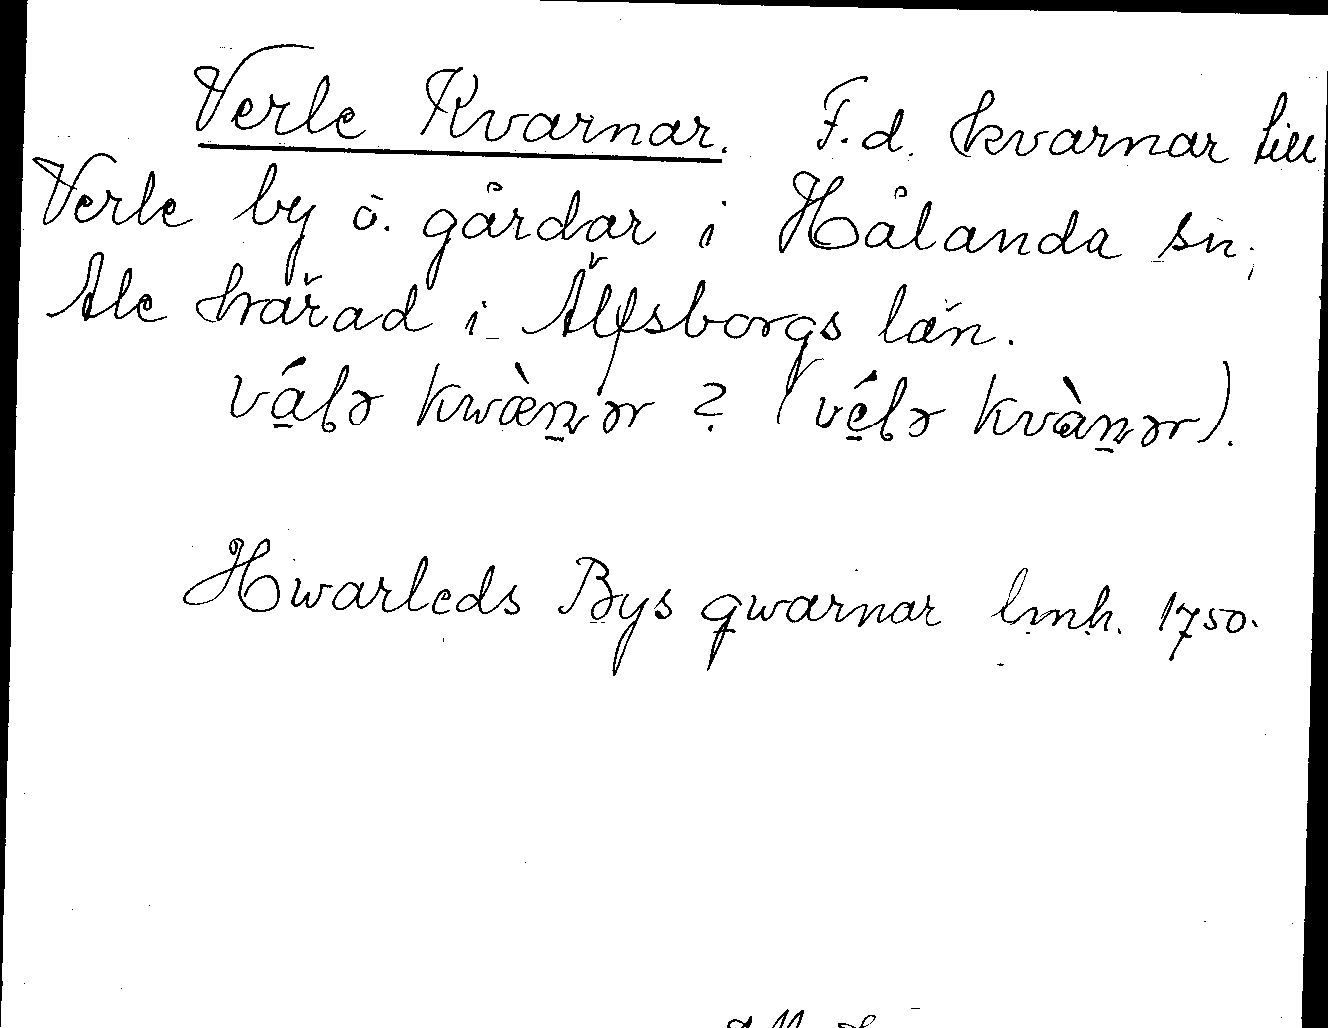 Verle Kvarnar. F.d. kvarnar till
Verle by o. gårdar i Hålanda sn,
Ale härad i Älfsborgs län.
kwæ̀n̠ər ? ( kvàn̠ər).
Hwarleds Bys qwarnar lmh. 1750.